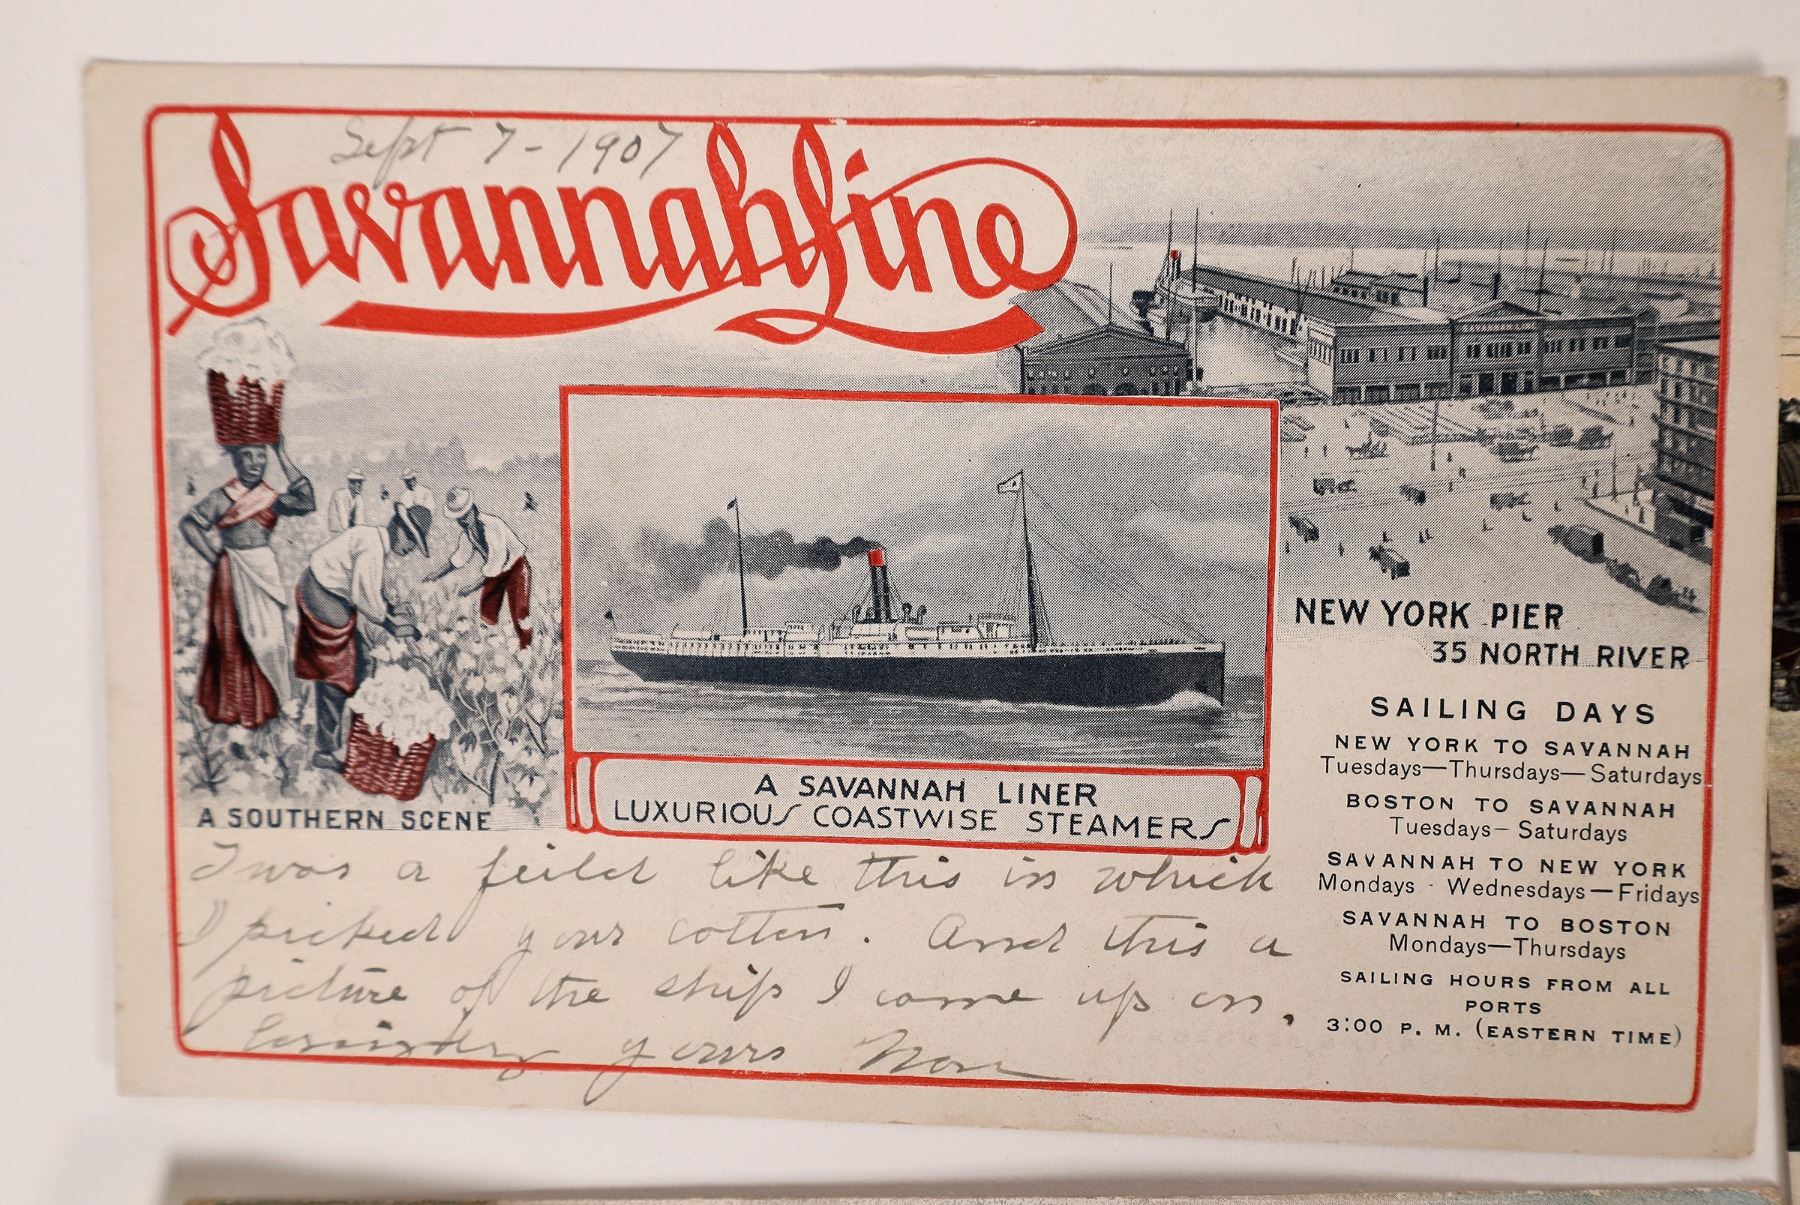 Sept 7-1907
Savannah Line
SAVANNAH LINE
NEW YORK PIER
35 NORTH RIVER
A SOUTHERN SCENE
A SAVANNAH LINER
LUXURIOUS COASTWISE STEAMERS
SAILING DAYS
NEW YORK TO SAVANNAH
Tuesdays—Thursdays—Saturdays
BOSTON TO SAVANNAH
Tuesdays—Saturdays
SAVANNAH TO NEW YORK
Mondays - Wednesdays—Fridays
SAVANNAH TO BOSTON
Mondays—Thursdays
SAILING HOURS FROM ALL
PORTS
3:00 P. M. (EASTERN TIME)
I was a feild like this in which
I picked your cotton. And this a
picture of the ship I came up on.
yours